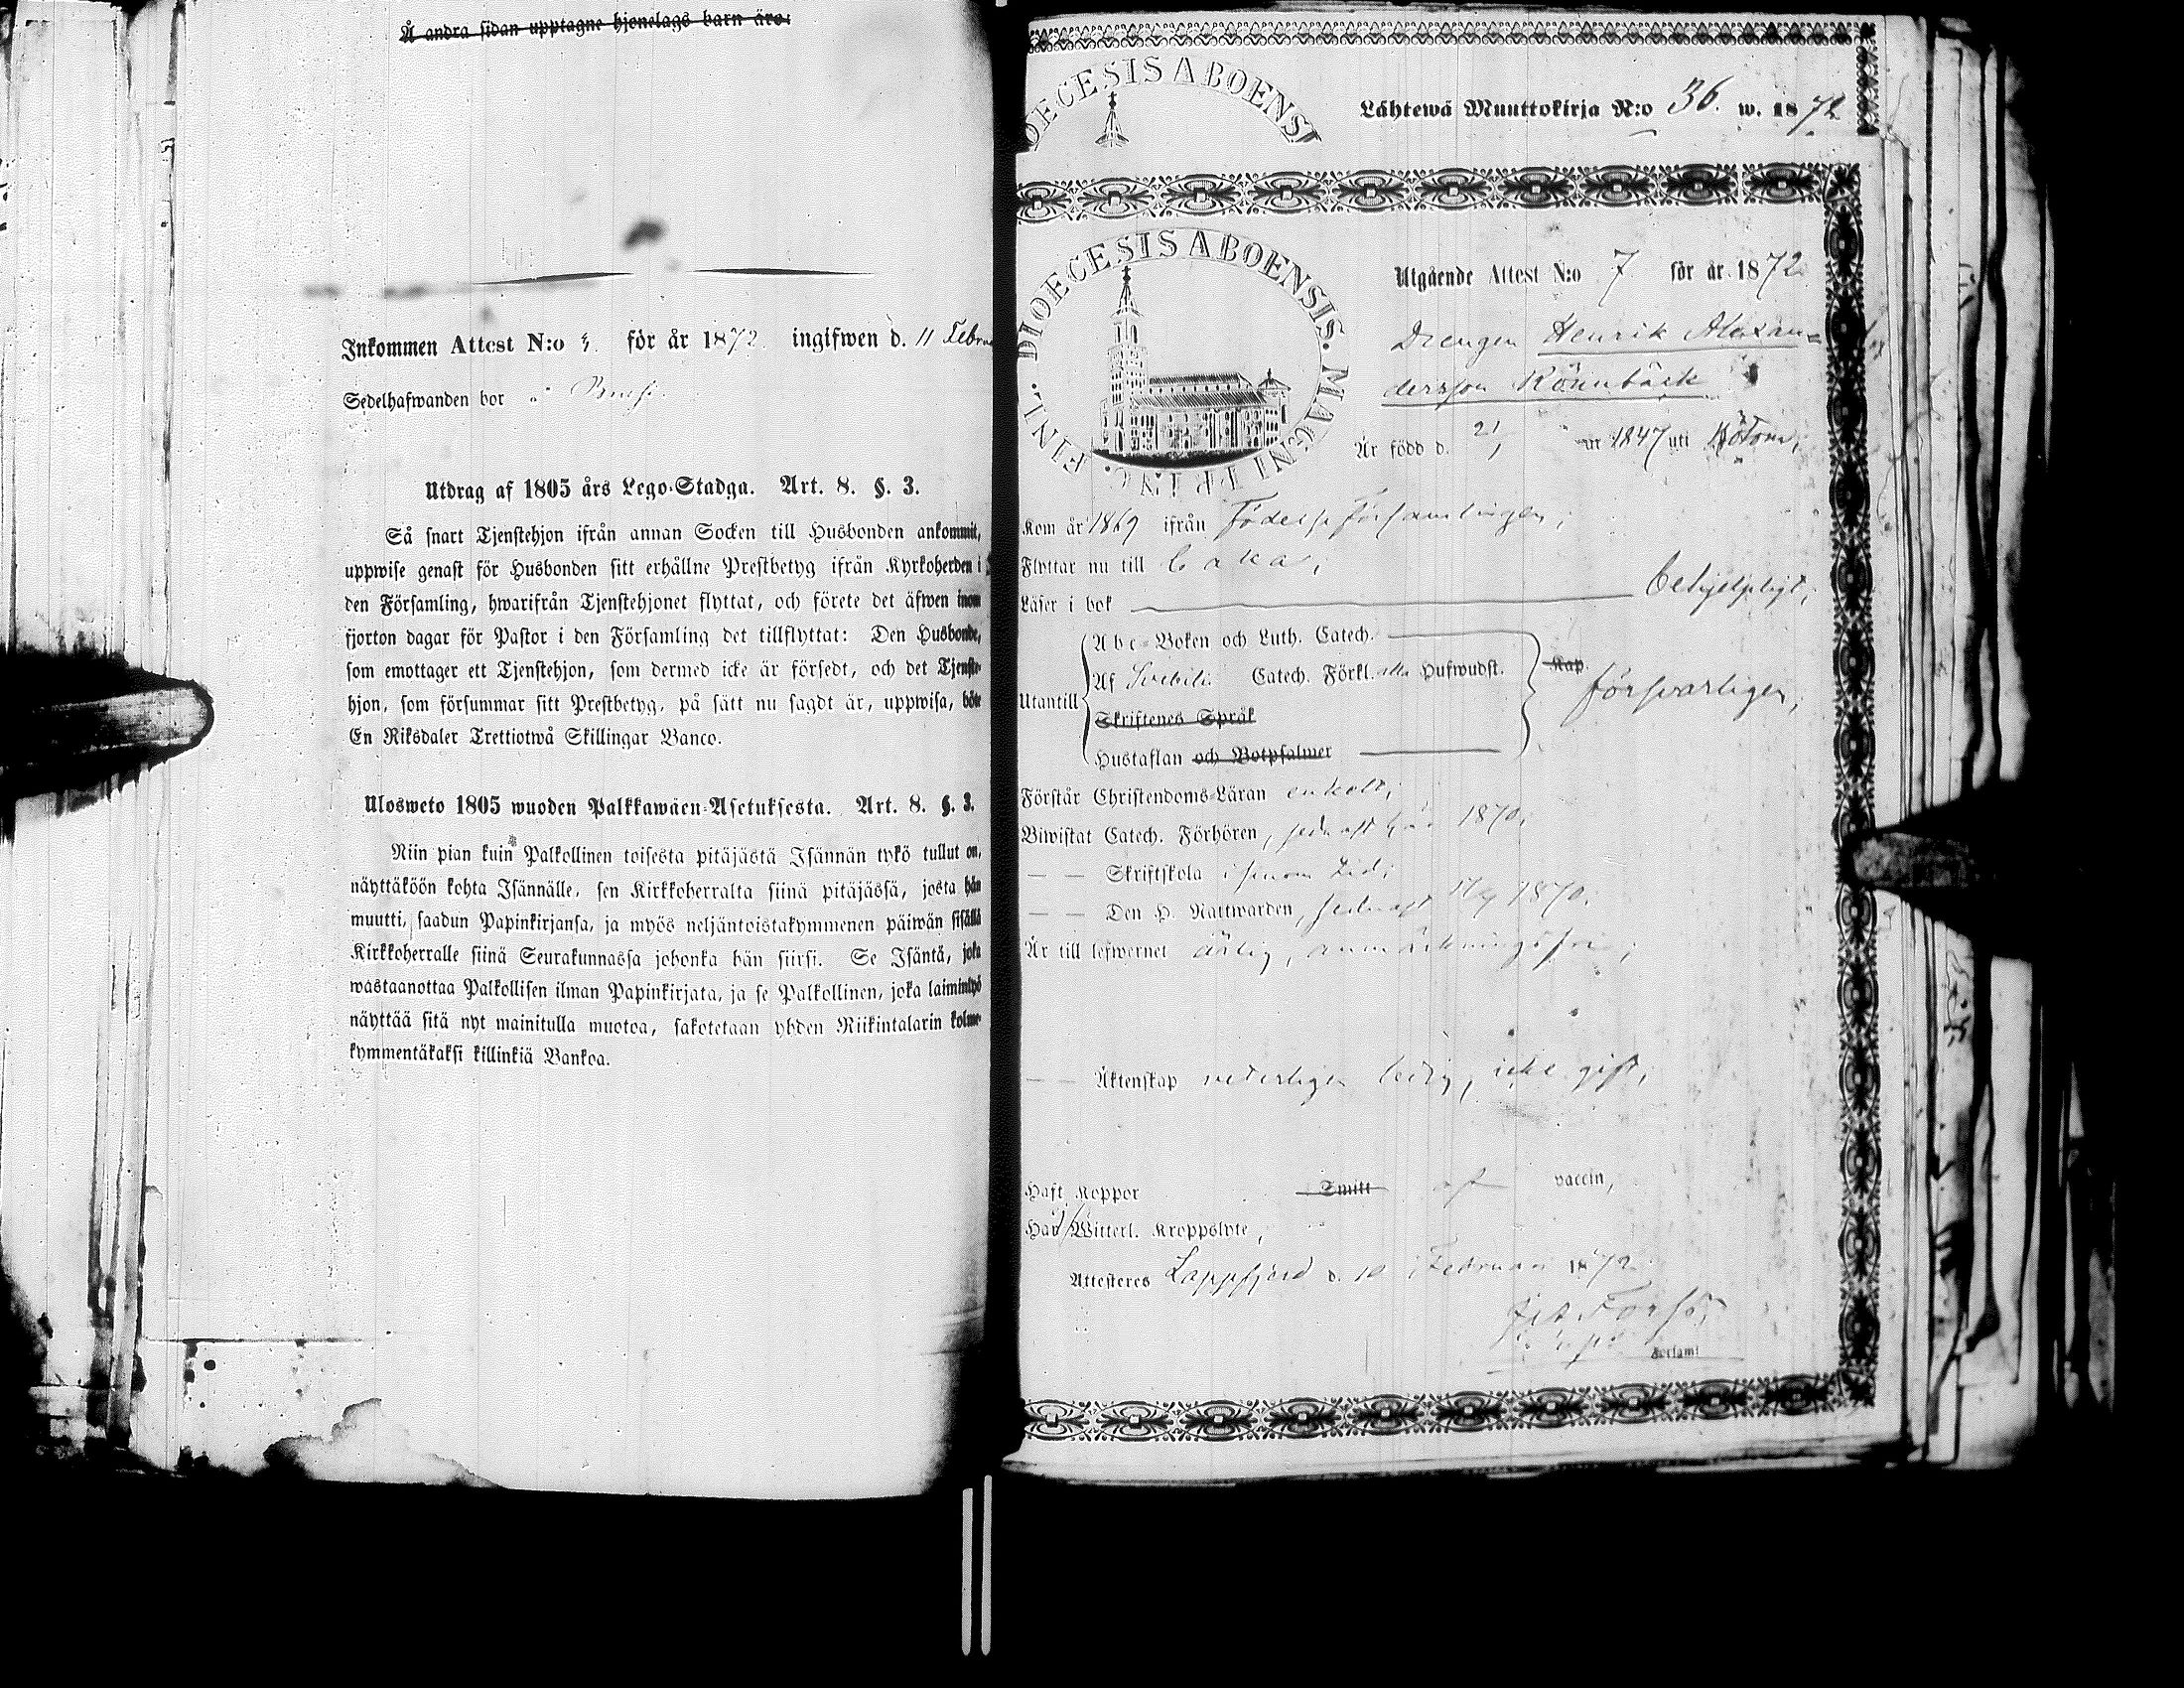 Å andra sidan upptagne hjonelags barn äro:
Inkommen Attest N:o 4. för år 1872. ingifwen d. 11 Februa
Sedelhafwanden bor
Utdrag af 1805 års Lego-Stadga. Art. 8. §. 3.
Så snart Tjenstehjon ifrån annan Socken till Husbonden ankommit,
uppwise genast för Husbonden sitt erhållne Prestbetyg ifrån Kyrkoherden i
den Församling, hwarifrån Tjenstehjonet flyttat, och förete det äfwen inom
fjorton dagar för Pastor i den Församling det tillflyttat: Den Husbonde,
som emottager ett Tjenstehjon, som dermed icke är försedt, och det Tjenste-
hjon, som försummar sitt Prestbetyg, på sätt nu sagdt är, uppwisa, böte
En Riksdaler Trettiotwå Skillingar Banco.
Ulosweto 1805 wuoden Palkkawäen-Asetuksesta. Art. 8. §. 3.
Niin pian kuin Palkollinen toisesta pitäjästä Isännän tykö tullut on,
näyttäköön kohta Isännälle, sen Kirkkoherralta siinä pitäjässä, josta hän
muutti, saadun Papinkirjansa, ja myös neljäntoistakymmenen päiwän sisällä
Kirkkoherralle siinä Seurakunnassa johonka hän siirsi. Se Isäntä, joka
wastaanottaa Palkollisen ilman Papinkirjata, ja se Palkollinen, joka laiminlyö
näyttää sitä nyt mainitulla muotoa, sakotetaan yhden Riikintalarin kolme-
kymmentäkaksi killinkiä Bankoa.
OECESIS ABOENSI
Lähtewä Muuttokirja N:o 36. w. 1872
DIOECESIS ABOENSIS. MAGNI PRINC. FINL.
Utgående Attest N:o 7 för år 1872.
Drengen Henrik Alexan=
dersson Rönnbäck
Är född d. 21 1847 uti Bötom,
Kom år 1869 ifrån Födelse församlingen,
Flyttar nu till
Läser i bok behjelpligt,
Utantill
Abc-Boken och Luth. Catech.
Af Svebili Catech. Förkl. alla Hufwudst.
Kap.
försvarligen,
Skriftenes Språk
Hustaflan och Botpsalmer
Förstår Christendoms-Läran enkelt,
Biwistat Catech. Förhören, sednast här 1870,
— — Skriftskola i sinom tid,
— — Den H. Nattwarden, sednast 1870.
Är till lefwernet ärlig, anmärkningsfri,
— — Äktenskap veterligen ledig, icke gift,
Haft Koppor Smitt af vaccin,
Har Witterl. Kroppslyte,
Attesteras Lappfjerd d. 10 Februari 1872
Församl